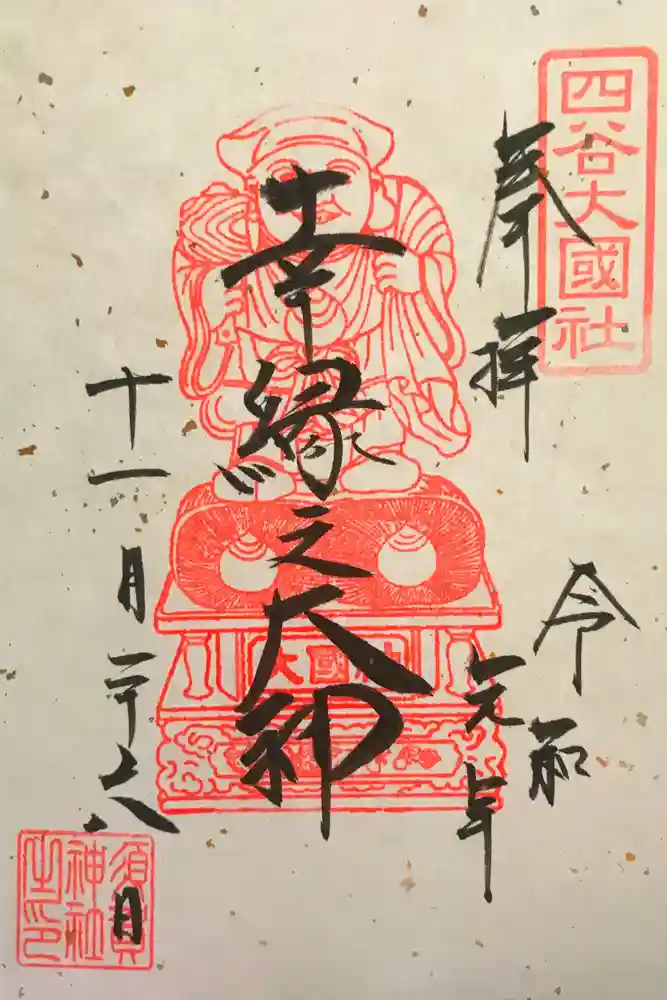 四谷大國社
奉拝
令和
元年
幸縁之大神
大國神
十一月二十六日
須賀神社之印